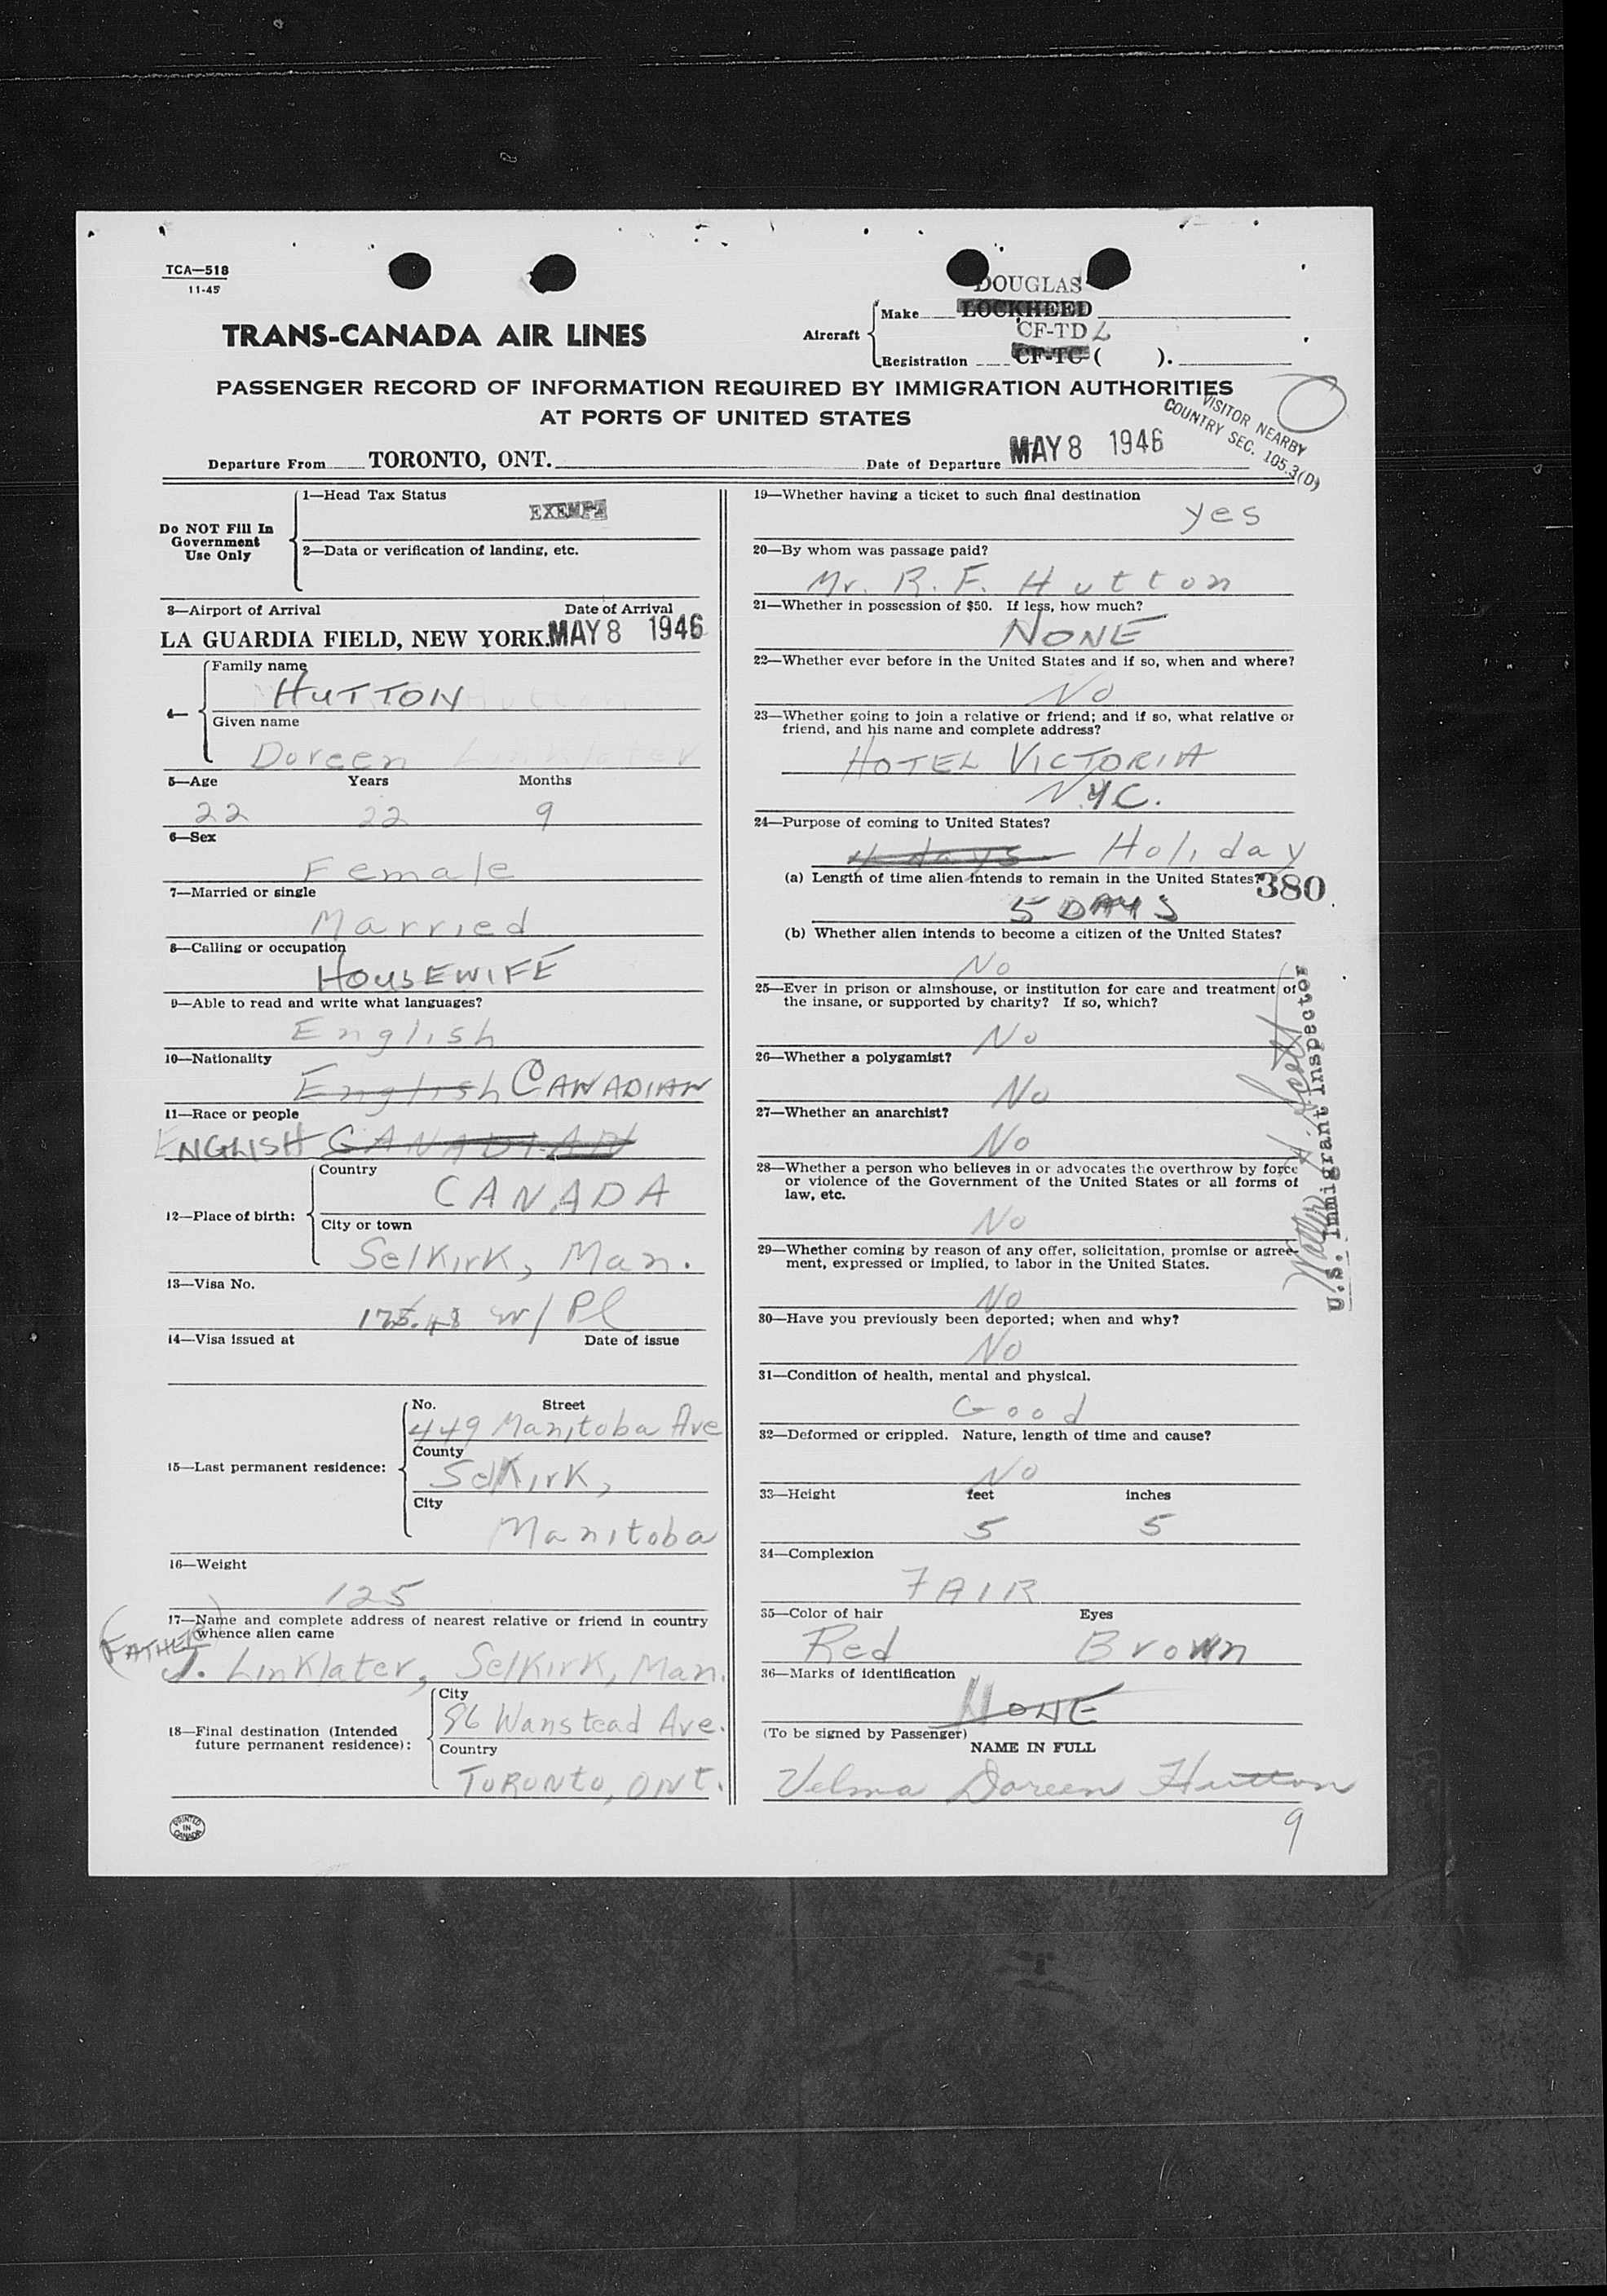 TCA—518
11-45
DOUGLAS
Make LOCKHEED
TRANS-CANADA AIR LINES
Aircraft
CF-TD L
Registration CF-TC ( ).
PASSENGER RECORD OF INFORMATION REQUIRED BY IMMIGRATION AUTHORITIES
AT PORTS OF UNITED STATES
VISITOR NEARBY
COUNTRY SEC. 105.3(D)
Departure From TORONTO, ONT.
Date of Departure MAY 8 1946
Do NOT Fill In
Government
Use Only
1—Head Tax Status
EXEMPT
2—Data or verification of landing, etc.
3—Airport of Arrival Date of Arrival
LA GUARDIA FIELD, NEW YORK. MAY 8 1946
4—
Family name
HUTTON
Given name
Doreen Linklater
5—Age Years Months
22 22 9
6—Sex
Female
7—Married or single
Married
8—Calling or occupation
HOUSEWIFE
9—Able to read and write what languages?
English
10—Nationality
English CANADIAN
11—Race or people
ENGLISH CANADIAN
12—Place of birth:
Country
CANADA
City or town
Selkirk, Man.
13—Visa No.
w/ Pl
14—Visa issued at Date of issue
15—Last permanent residence:
No. Street
449 Manitoba Ave
County
Selkirk,
City
Manitoba
16—Weight
125
17—Name and complete address of nearest relative or friend in country
whence alien came
(FATHER)
J. Linklater, Selkirk, Man.
18—Final destination (Intended
future permanent residence):
City
96 Wanstead Ave.
Country
TORONTO, ONT.
PRINTED
IN
CANADA
19—Whether having a ticket to such final destination
yes
20—By whom was passage paid?
Mr. R. F. Hutton
21—Whether in possession of $50. If less, how much?
NONE
22—Whether ever before in the United States and if so, when and where?
No
23—Whether going to join a relative or friend; and if so, what relative or
friend, and his name and complete address?
HOTEL VICTORIA
N.Y.C.
24—Purpose of coming to United States?
4 days Holiday
(a) Length of time alien intends to remain in the United States?
380
5 DAYS
(b) Whether alien intends to become a citizen of the United States?
No
25—Ever in prison or almshouse, or institution for care and treatment of
the insane, or supported by charity? If so, which?
No
26—Whether a polygamist?
No
27—Whether an anarchist?
No
28—Whether a person who believes in or advocates the overthrow by force
or violence of the Government of the United States or all forms of
law, etc.
No
29—Whether coming by reason of any offer, solicitation, promise or agree-
ment, expressed or implied, to labor in the United States.
No
30—Have you previously been deported; when and why?
No
31—Condition of health, mental and physical.
Good
32—Deformed or crippled. Nature, length of time and cause?
No
33—Height feet inches
5 5
34—Complexion
FAIR
35—Color of hair Eyes
Red Brown
36—Marks of identification
NONE
(To be signed by Passenger)
NAME IN FULL
Velma Doreen Hutton
9
U.S. Immigrant Inspector